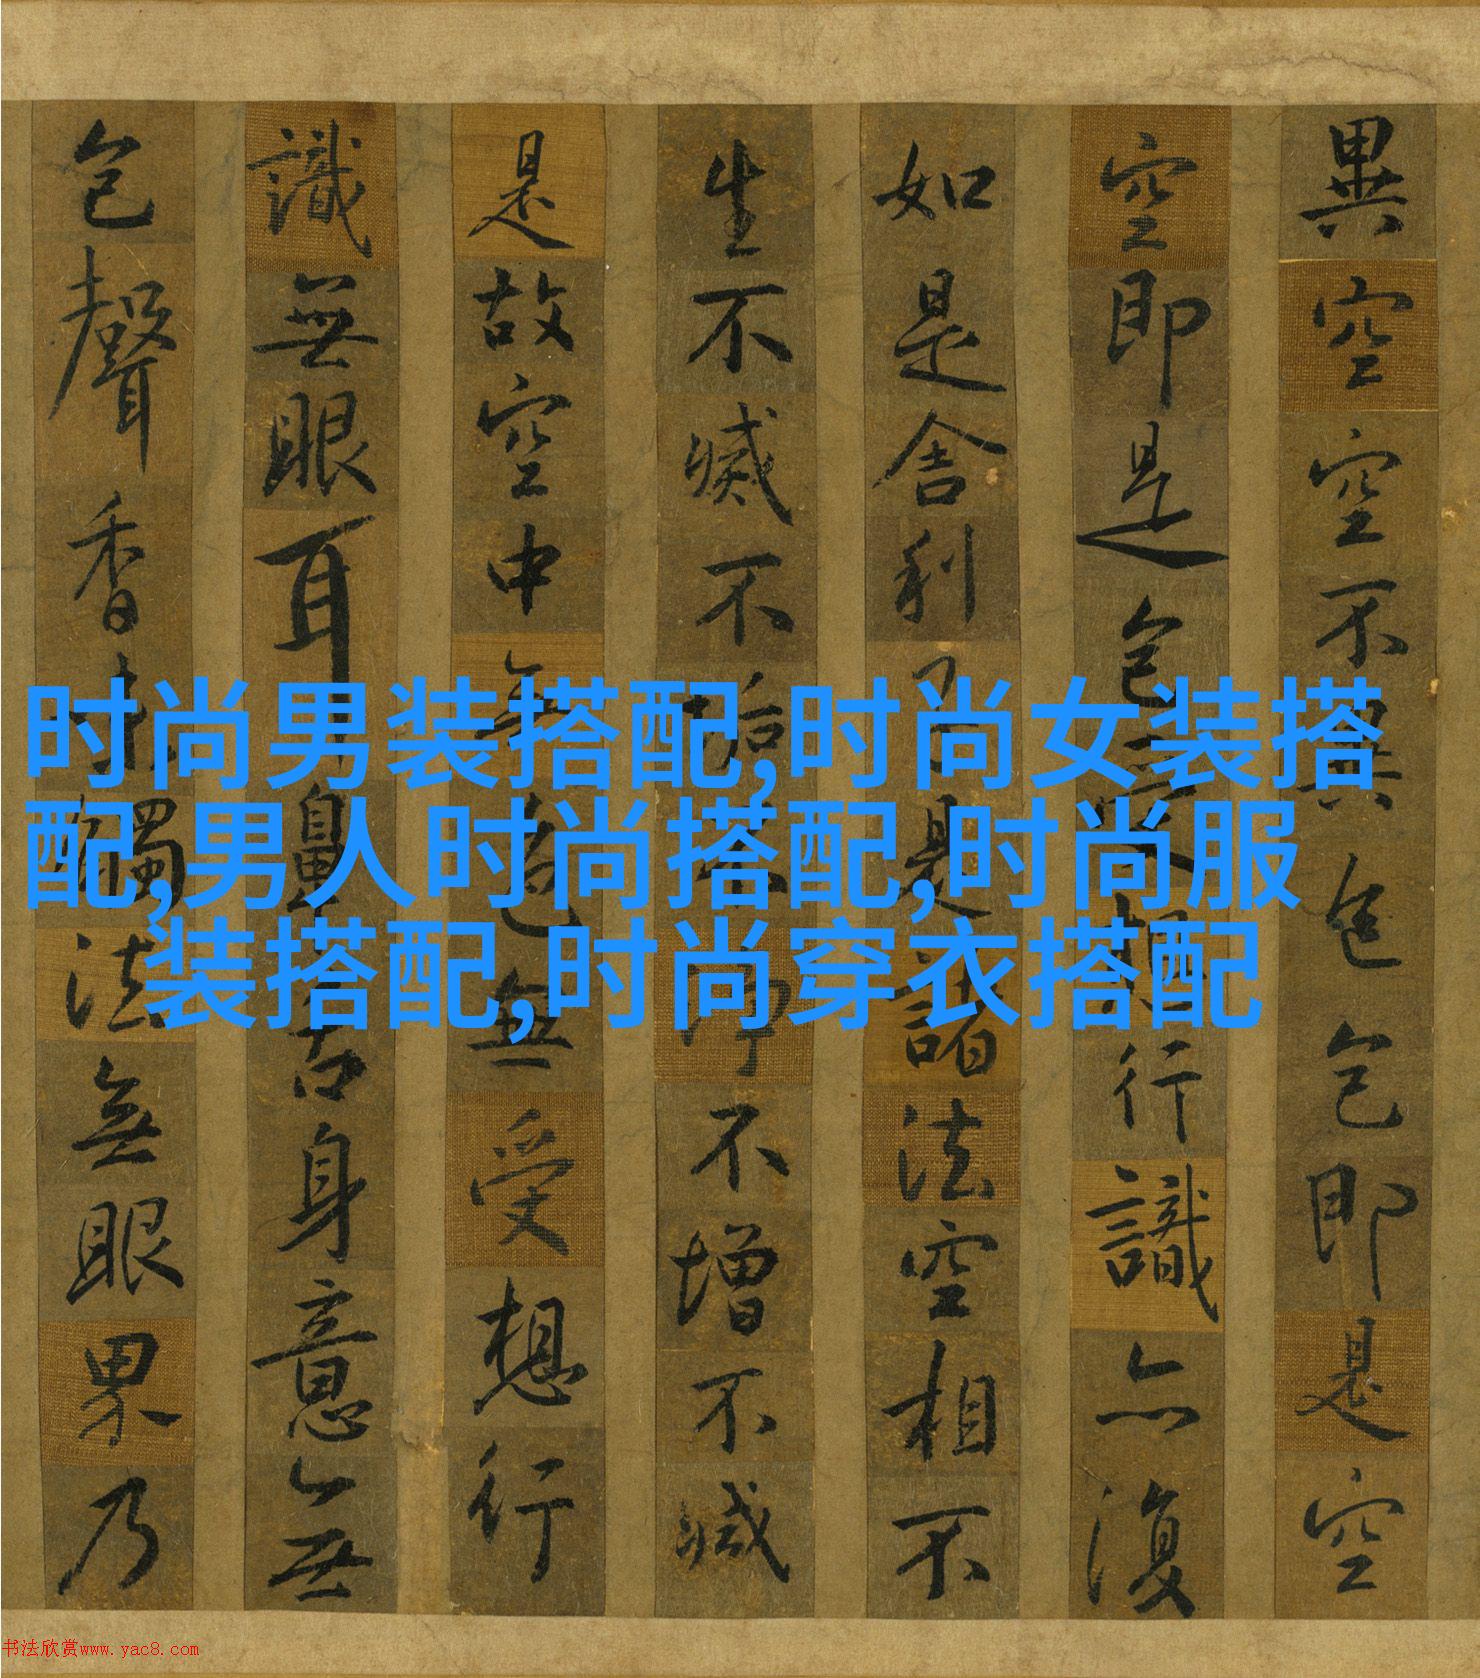 異空空不異色色即是空
空即是色受想行識亦復
如是舍利子是諸法空相不
生不滅不垢不淨不增不減
是故空中無色無受想行
識無眼耳鼻舌身意無
色聲香味觸法無眼界乃
时尚男装搭配,时尚女装搭
配,男人时尚搭配,时尚服
装搭配,时尚穿衣搭配
书法欣赏www.yac8.com